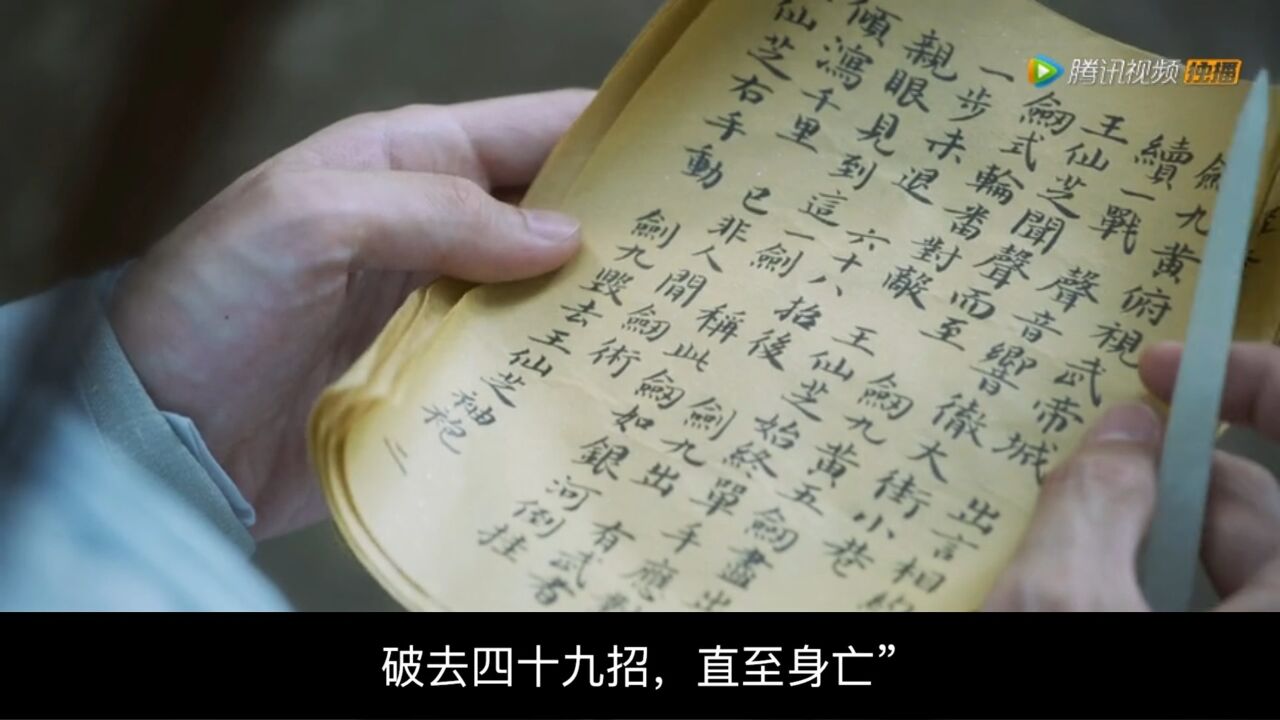 劍九黄俯視武帝城 出言相約
續一戰 聲音響徹大街小巷
王仙芝聞聲而至 劍九黄五劍盡出
劍式輪番對敵 王仙芝始終單手應對
一步未退 六十八招後 劍九出 有武者
親眼見到這一劍 稱此劍如銀河倒挂
傾瀉千里 已非人間劍術
仙芝右手動 劍九毀去王仙芝袖袍 二
腾讯视频 独播
破去四十九招，直至身亡”